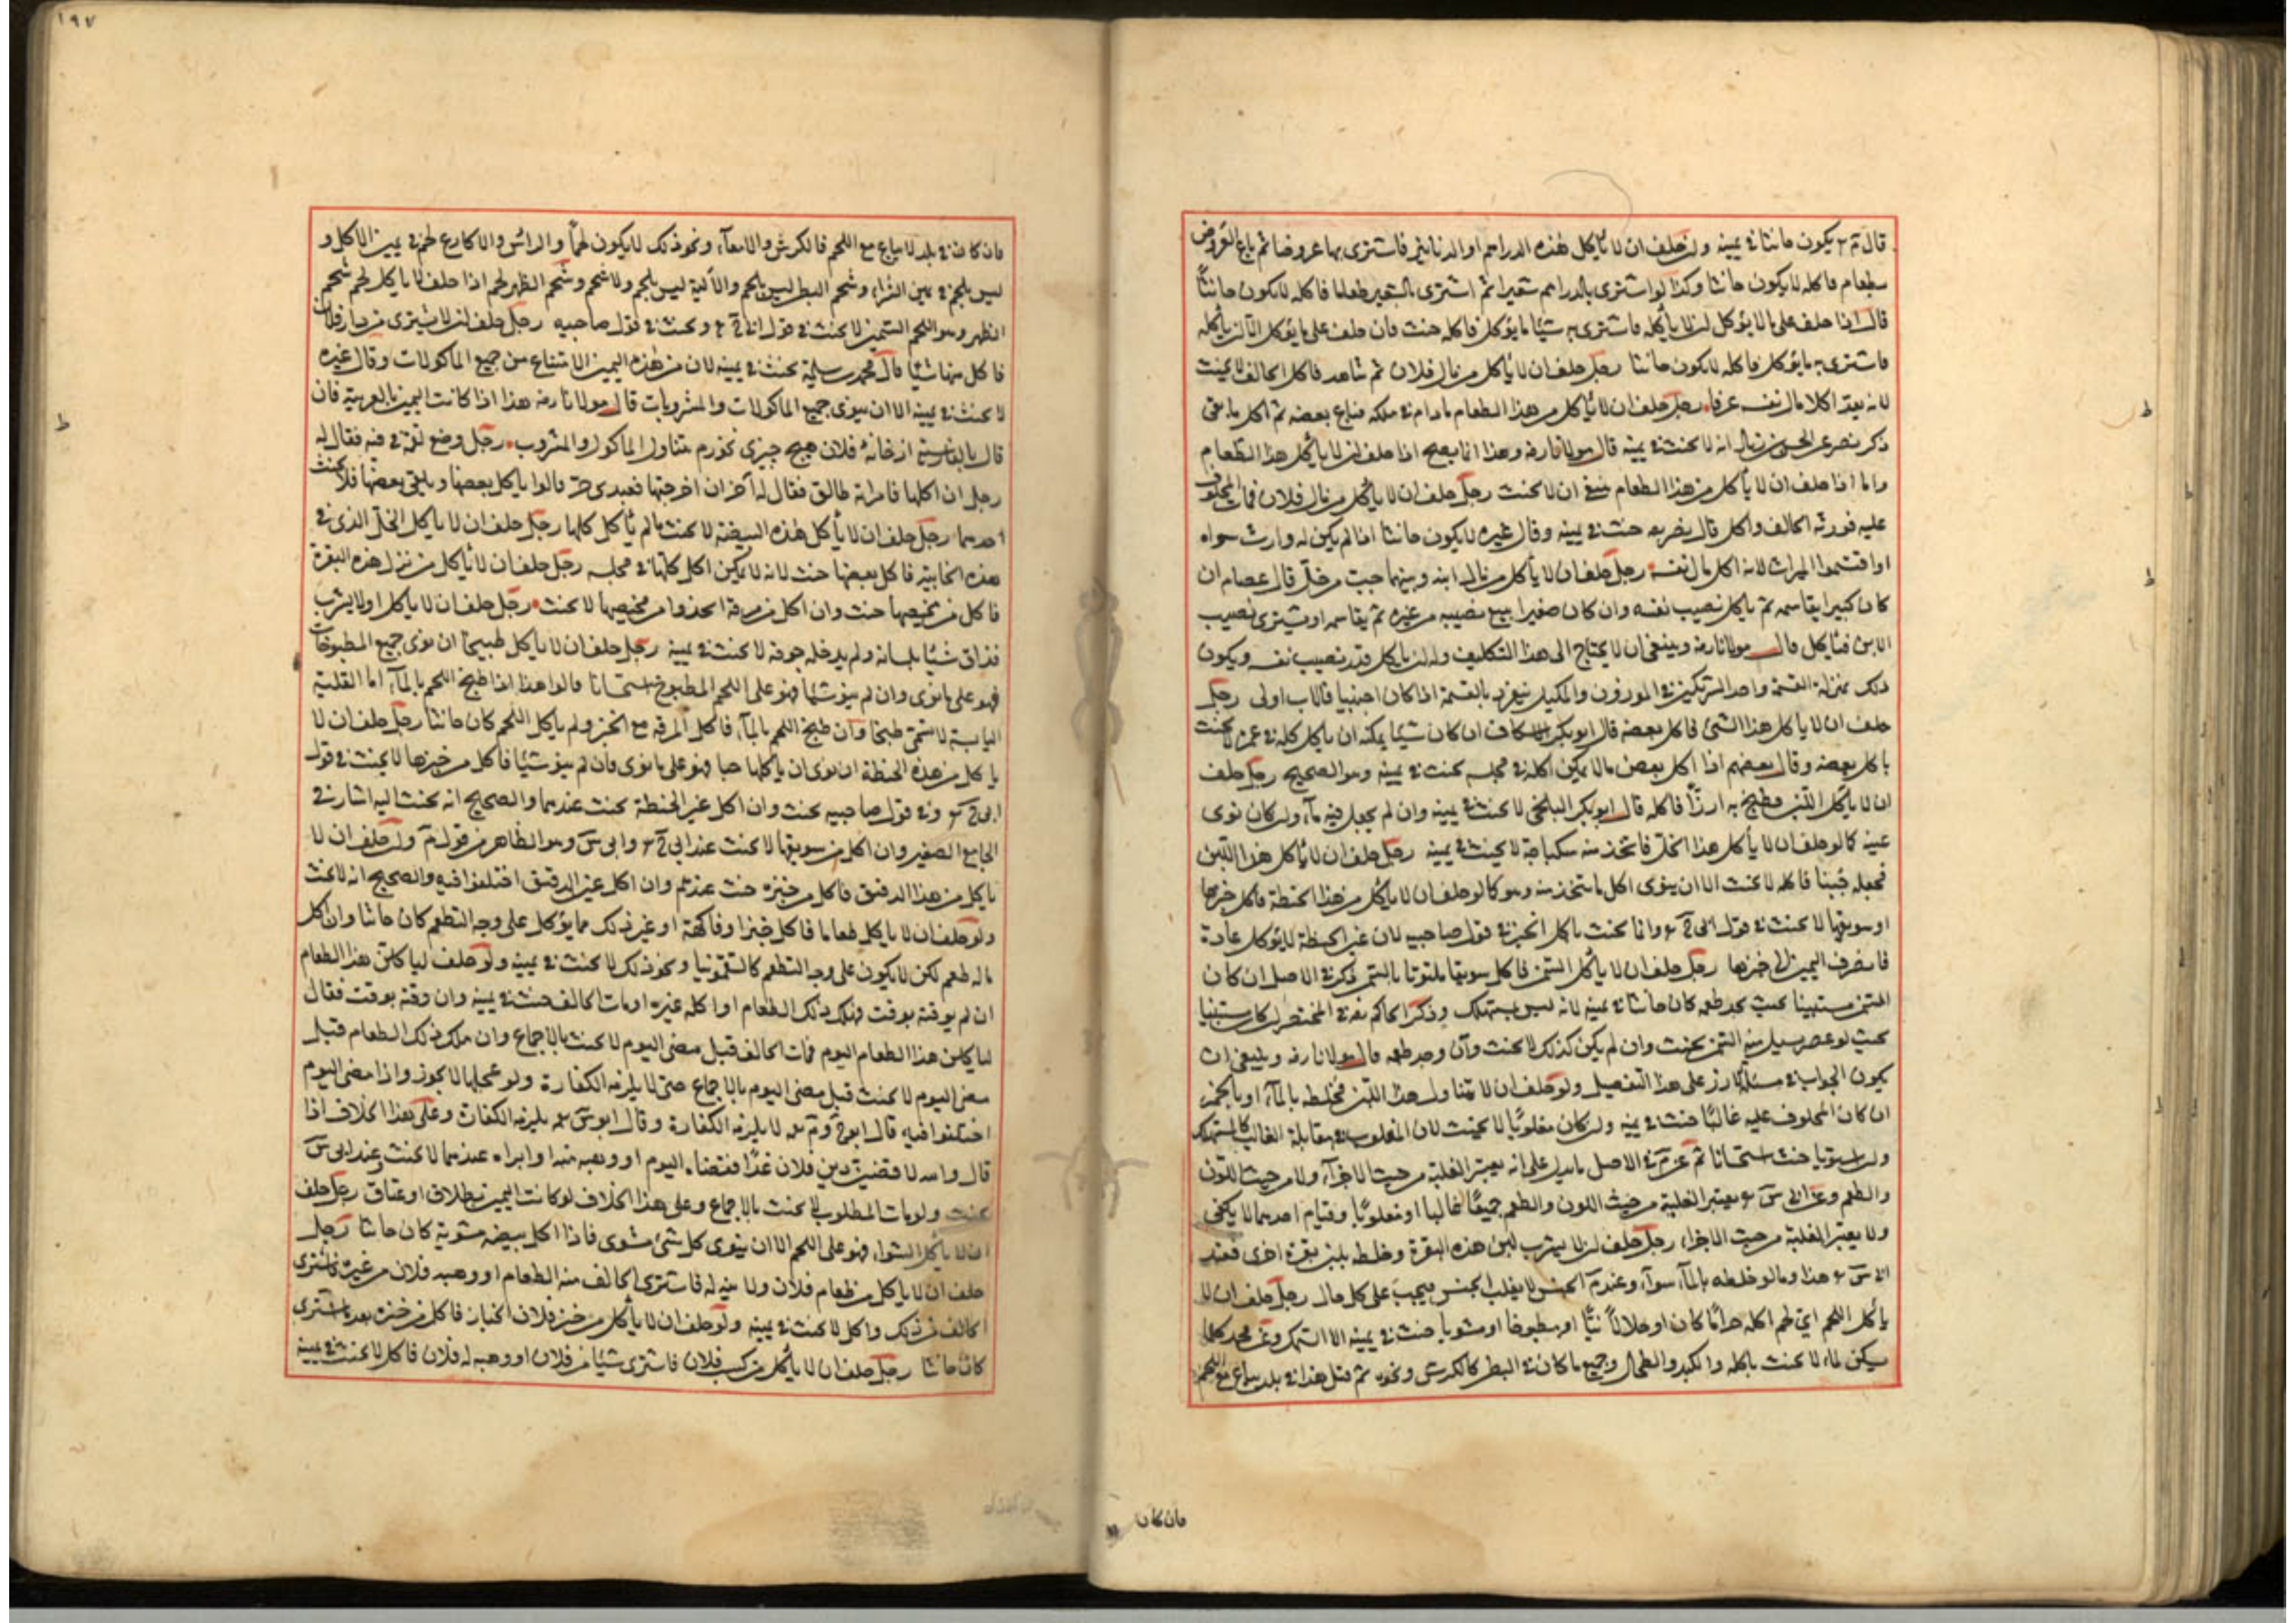 قال م ر يكون حانثا في يمينه ولو حلف ان لا ياكل هذه الدراهم او الدنانير فاشترى بها عروضا ثم باع العروض
بطعام فاكله لا يكون حانثا وكذا لو اشترى بالدراهم شعيرا ثم اشترى بالشعير طعاما فاكله لا يكون حانثا
قال اذا حلف على ما لا يؤكل ان لا ياكله فاشترى به شيئا مما يؤكل فاكله حنث فان حلف على ما يؤكل ان لا ياكله
فاشترى به ما يؤكل فاكله لا يكون حانثا رجل حلف ان لا ياكل من مال فلان ثم تناهدا فاكل الحالف لا يحنث
لانه يعد اكلا مال نفسه عرفا رجل حلف ان لا ياكل من هذا الطعام مادام في ملكه فباع بعضه ثم اكل ما بقي
ذكر نصر عن الحسن بن زياد انه لا يحنث في يمينه قال مولانا رضه وهذا انما يصح اذا حلف ان لا ياكل هذا الطعام
واما اذا حلف ان لا ياكل من هذا الطعام ينبغي ان لا يحنث رجل حلف ان لا ياكل من مال فلان فمات المحلوف
عليه فورثه الحالف واكل قال نصير حنث في يمينه وقال غيره لا يكون حانثا اذا لم يكن له وارث سواه
او اقتسموا الميراث لانه اكل مال نفسه رجل حلف ان لا ياكل من مال ابنه وبينهما حب من خل قال عصام ان
كان كبيرا يقاسمه ثم ياكل نصيب نفسه وان كان صغيرا يبيع نصيبه من غيره ثم يقاسمه او يشتري نصيب
الابن فياكل قال مولانا رضه وينبغي ان لا يحتاج الى هذا التكليف وله ان ياكل قدر نصيب نفسه ويكون
ذلك بمنزلة القسمة واحد الشريكين في الموزون والمكيل ينفرد بالقسمة اذا كان اجنبيا فالاب اولى رجل
حلف ان لا ياكل هذا الشئ فاكل بعضه قال ابو بكر الاسكاف ان كان شيئا يمكنه ان ياكل كله في عمره لا يحنث
باكل بعضه وقال بعضهم اذا اكل بعض مالا يمكن اكله في مجلسه يحنث في يمينه وهو الصحيح رجل حلف
ان لا ياكل اللبن فطبخ به ارزا فاكله قال ابو بكر البلخي لا يحنث في يمينه وان لم يجعل فيه ماء وان كان نوى
عينه كما لو حلف ان لا ياكل هذا الخل فاتخذ منه سكباجة لا يحنث في يمينه رجل حلف ان لا ياكل هذا اللبن
فجعله جبنا فاكله لا يحنث الا ان ينوي اكل ما يتخذ منه وهو كما لو حلف ان لا ياكل من هذا الحنطة فاكل خبزها
او سويقها لا يحنث في قول ابي ح ر وانما يحنث باكل الخبز في قول صاحبيه لان عين الحنطة لا يؤكل عادة
فانصرف اليمين الى خبزها رجل حلف ان لا ياكل السمن فاكل سويقا ملتوتا بالسمن ذكر في الاصل ان كان
السمن مستبينا بحيث يجد طعمه كان حانثا في يمينه لانه ليس بمستهلك وذكر الحاكم في المختصر ان كان مستبينا
بحيث لو عصر يسيل منه السمن يحنث وان لم يكن كذلك لا يحنث وان وجد طعمه قال مولانا رضه وينبغي ان
يكون الجواب في مسئلة الارز على هذا التفصيل ولو حلف ان لا يتناول هذا اللبن فخلطه بالماء
ان كان المحلوف عليه غالبا حنث في يمينه وان كان مغلوبا لا يحنث لان المغلوب في مقابلة الغالب كالمستهلك
وان استويا حنث استحسانا ثم عن م في الاصل ما يدل على انه يعتبر الغلبة من حيث الاجزاء ولا من حيث اللون
والطعم وعن ابي س ر يعتبر الغلبة من حيث اللون والطعم جميعا غالبا او مغلوبا وقيام احدهما لا يكفي
ولا يعتبر الغلبة من حيث الاجزاء رجل حلف ان لا يشرب لبن هذه البقرة وخلطه بلبن بقرة اخرى فعند
ابي س ر هذا وما لو خلطه بالماء سواء وعند م الجنس لا يغلب الجنس فيجب على كل حال رجل حلف ان لا
ياكل اللحم اي لحم اكله حراما كان او حلالا نيا او مطبوخا او مشويا حنث في يمينه الا السمك وعن محمد كلما
يسكن الماء لا يحنث باكله والكبد والطحال وجميع ما كان في البطن كالكرش ونحوه ثم قيل هذا في بلد يباع مع اللحم
فان كان
١٩٧
فان كان في بلد لا يباع مع اللحم فالكرش والامعاء ونحو ذلك لا يكون لحما والراس والاكارع لحم في يمين الاكل و
ليس بلحم في يمين الشراء وشحم البطن ليس بلحم والالية ليس بلحم ولا شحم وشحم الظهر لحم اذا حلف لا ياكل لحم شحم
الظهر وهو اللحم السمين لا يحنث في قول ابي ح ر ويحنث في قول صاحبيه رجل حلف ان لا يشتري من دار فلان
فاكل منها شيئا قال محمد بن سلمة يحنث في يمينه لان من هذه اليمين الامتناع من جميع الماكولات وقال غيره
لا يحنث في يمينه الا ان ينوي جميع الماكولات والمشروبات قال مولانا رضه هذا اذا كانت اليمين بالعربية فان
قال بالفارسية از خانه فلان هيچ چيزى نخورم يتناول الماكول والمشروب رجل وضع لقمة في فيه فقال له
رجل ان اكلها فامراته طالق فقال له آخر ان اخرجتها فعبدى حر قالوا ياكل بعضها ويلقي بعضها فلا يحنث
احدهما رجل حلف ان لا ياكل هذه البيضة لا يحنث مالم ياكل كلها رجل حلف ان لا ياكل الخل الذي في
هذه الخابية فاكل بعضها حنث لانه لا يمكن اكل كلها في مجلسه رجل حلف ان لا ياكل من نزل هذه البقرة
فاكل من مخيضها حنث وان اكل من مرقة اتخذوا من مخيضها لا يحنث رجل حلف ان لا ياكل او لا يشرب
فذاق شيئا بلسانه ولم يدخله جوفه لا يحنث في يمينه رجل حلف ان لا ياكل طبيخا ان نوى جميع المطبوخات
فهو على ما نوى وان لم ينو شيئا فهو على اللحم المطبوخ استحسانا قالوا هذا اذا طبخ اللحم بالماء اما القلية
اليابسة لا تسمى طبخا وان طبخ اللحم بالماء فاكل المرقة مع الخبز ولم ياكل اللحم كان حانثا رجل حلف ان لا
ياكل من هذه الحنطة ان نوى ان ياكلها حبا فهو على ما نوى فان لم ينو شيئا فاكل من خبزها لا يحنث في قول
ابي ح ر وفي قول صاحبيه يحنث وان اكل عين الحنطة يحنث عندهما والصحيح انه يحنث اليه اشار في
الجامع الصغير وان اكل من سويقها لا يحنث عند ابي ح ر وابي س وهو الظاهر من قول م ولو حلف ان لا
ياكل من هذا الدقيق فاكل من خبزه حنث عندهم وان اكل عين الدقيق اختلفوا فيه والصحيح انه لا يحنث
ولو حلف ان لا ياكل طعاما فاكل خبزا او فاكهة او غير ذلك مما يؤكل على وجه التطعم كان حانثا وان اكل
ماله طعم لكن لا يكون على وجه التطعم كالسقمونيا ونحو ذلك لا يحنث في يمينه ولو حلف لياكلن هذا الطعام
ان لم يوقته بوقت فهلك ذلك الطعام او اكله غيره او مات الحالف حنث في يمينه وان وقته بوقت فقال
لياكلن هذا الطعام اليوم فمات الحالف قبل مضي اليوم لا يحنث بالاجماع وان هلك ذلك الطعام قبل
مضي اليوم لا يحنث قبل مضي اليوم بالاجماع حتى لا يلزمه الكفارة ولو عجلها لا يجوز واذا مضى اليوم
اختلفوا فيه قال ابو ح و م رحمه لا يلزمه الكفارة وقال ابو س رحمه يلزمه الكفارة وعلى هذا الخلاف اذا
قال والله لاقضين دين فلان غدا فقضاه اليوم او وهبه منه او ابراه عندهما لا يحنث وعند ابي س
يحنث ولو مات المطلوب لا يحنث بالاجماع وعلى هذا الخلاف لو كانت اليمين بطلاق او عتاق رجل حلف
ان لا ياكل الشواء فهو على اللحم الا ان ينوي كل شئ مشوي فاذا اكل بيضه مشوية كان حانثا رجل
حلف ان لا ياكل من طعام فلان ولا نية له فاشترى الحالف منه الطعام او وهبه فلان من غيره فاشترى
الحالف من ذلك واكل لا يحنث في يمينه ولو حلف ان لا ياكل من خبز فلان الخباز فاكل من خبزه بعد ما اشترى
كان حانثا رجل حلف ان لا ياكل من كسب فلان فاشترى شيئا من فلان او وهبه له فلان فاكل لا يحنث في يمينه